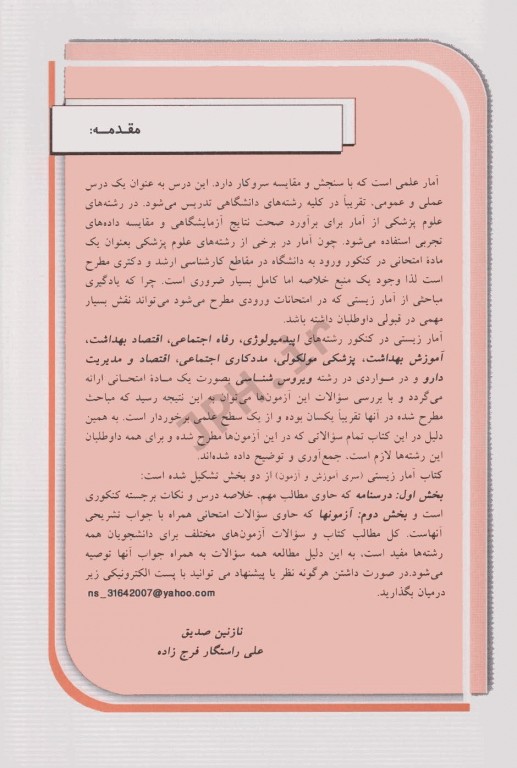 مقدمـــه:
آمار علمی است که با سنجش و مقایسه سروکار دارد. این درس به عنوان یک درس
عملی و عمومی، تقریباً در کلیه رشته‌های دانشگاهی تدریس می‌شود. در رشته‌های
علوم پزشکی از آمار برای برآورد صحت نتایج آزمایشگاهی و مقایسه داده‌های
تجربی استفاده می‌شود. چون آمار در برخی از رشته‌های علوم پزشکی بعنوان یک
مادۀ امتحانی در کنکور ورود به دانشگاه در مقاطع کارشناسی ارشد و دکتری مطرح
است لذا وجود یک منبع خلاصه اما کامل بسیار ضروری است. چرا که یادگیری
مباحثی از آمار زیستی که در امتحانات ورودی مطرح می‌شود می‌تواند نقش بسیار
مهمی در قبولی داوطلبان داشته باشد.
آمار زیستی در کنکور رشته‌های اپیدمیولوژی، رفاه اجتماعی، اقتصاد بهداشت،
آموزش بهداشت، پزشکی مولکولی، مددکاری اجتماعی، اقتصاد و مدیریت
دارو و در مـواردی در رشته ویروس شنـاسی بصورت یک مـادۀ امتحـانی ارائه
می‌گردد و با بررسی سؤالات این آزمون‌ها می‌توان به این نتیجه رسید که مباحث
مطرح شده در آنها تقریباً یکسان بوده و از یک سطح علمی برخوردار است. به همین
دلیل در این کتاب تمام سؤالاتی که در این آزمون‌ها مطرح شده و برای همه داوطلبان
این رشته‌ها لازم است، جمع‌آوری و توضیح داده شده‌اند.
کتاب آمار زیستی (سری آموزش و آزمون) از دو بخش تشکیل شده است:
بخش اول: درسنامه که حاوی مطالب مهم، خلاصه درس و نکات برجسته کنکوری
است و بخش دوم: آزمونها که حاوی سؤالات امتحانی همراه با جواب تشریحی
آنهاست. کل مطالب کتاب و سؤالات آزمون‌های مختلف برای دانشجویان همه
رشته‌ها مفید است، به این دلیل مطالعه همه سؤالات به همراه جواب آنها توصیه
می‌شود.در صورت داشتن هرگونه نظر یا پیشنهاد می توانید با پست الکترونیکی زیر
درمیان بگذارید. ns_31642007@yahoo.com
نازنین صدیق
علی راستگار فرج زاده
JPH.ir